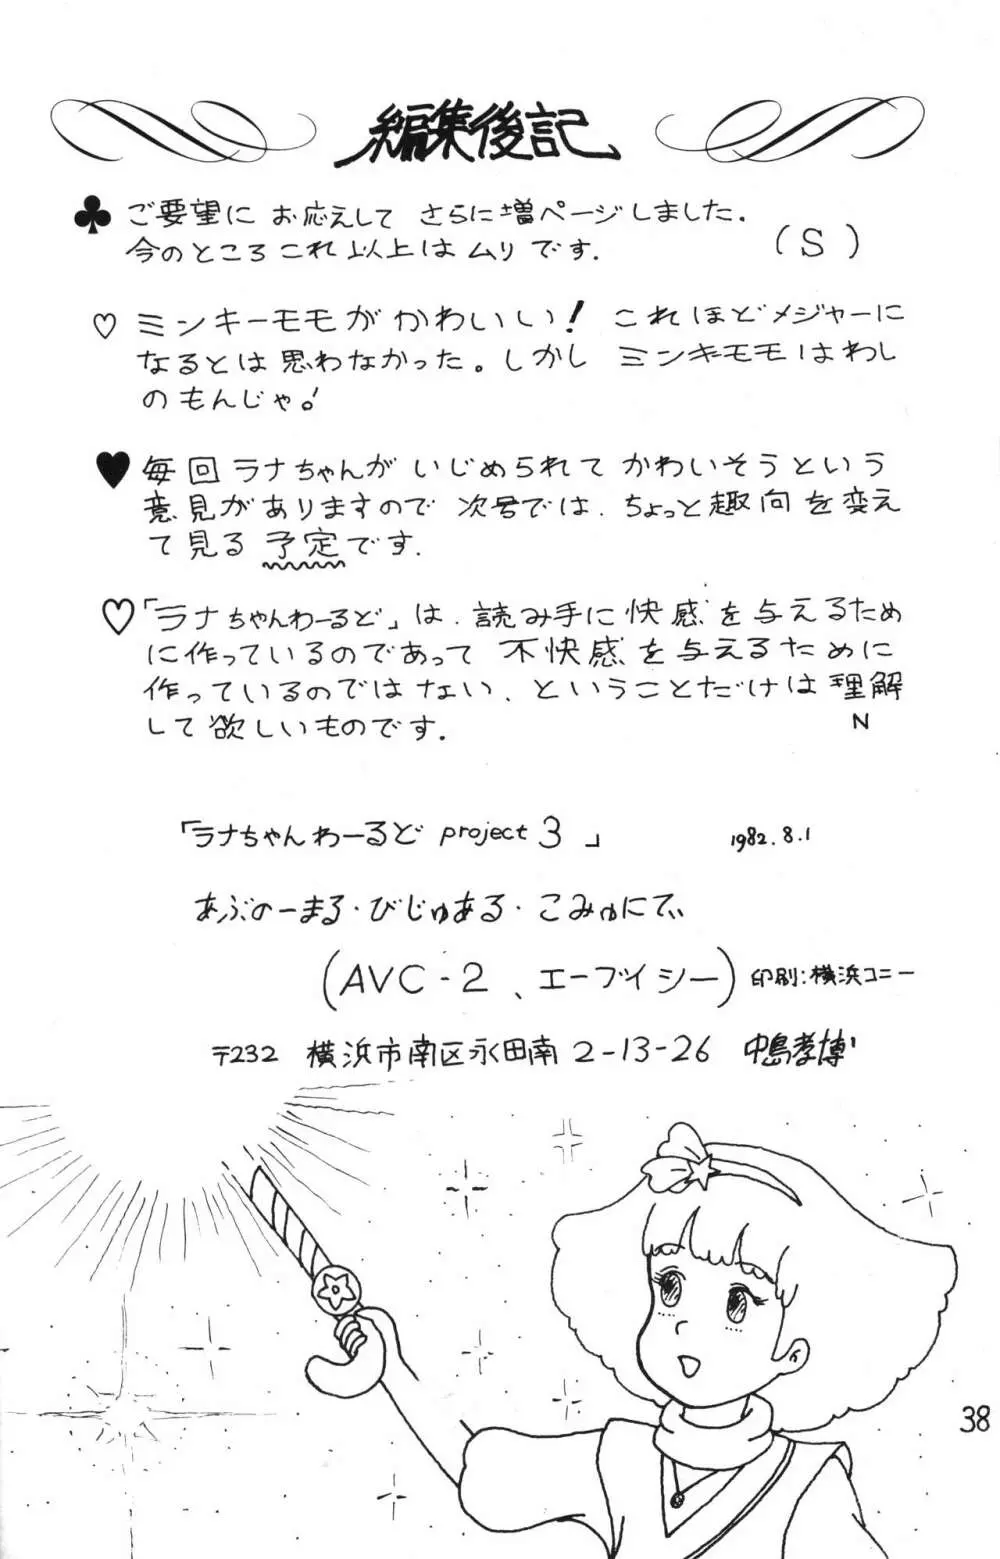 編集後記
♣ ご要望に お応えして さらに増ページしました.
今のところこれ以上はムリです.
(S)
♡ ミンキーモモがかわいい! これほどメジャーに
なるとは思わなかった。しかし ミンキモモはわし
のもんじゃ!
♥ 毎回 ラナちゃんが いじめられて かわいそうという
意見がありますので 次号では. ちょっと趣向を変え
て見る 予定です.
♡「ラナちゃんわーるど」は. 読み手に快感を与えるため
に作っているのであって 不快感を与えるために
作っているのではない、ということだけは理解
して欲しいものです.
N
「ラナちゃんわーるど project 3」
1982.8.1
あぶのーまる・びじゅある・こみゅにてぃ
(AVC-2、エーブイシー) 印刷:横浜コニー
〒232 横浜市南区永田南2-13-26 中島孝博
38